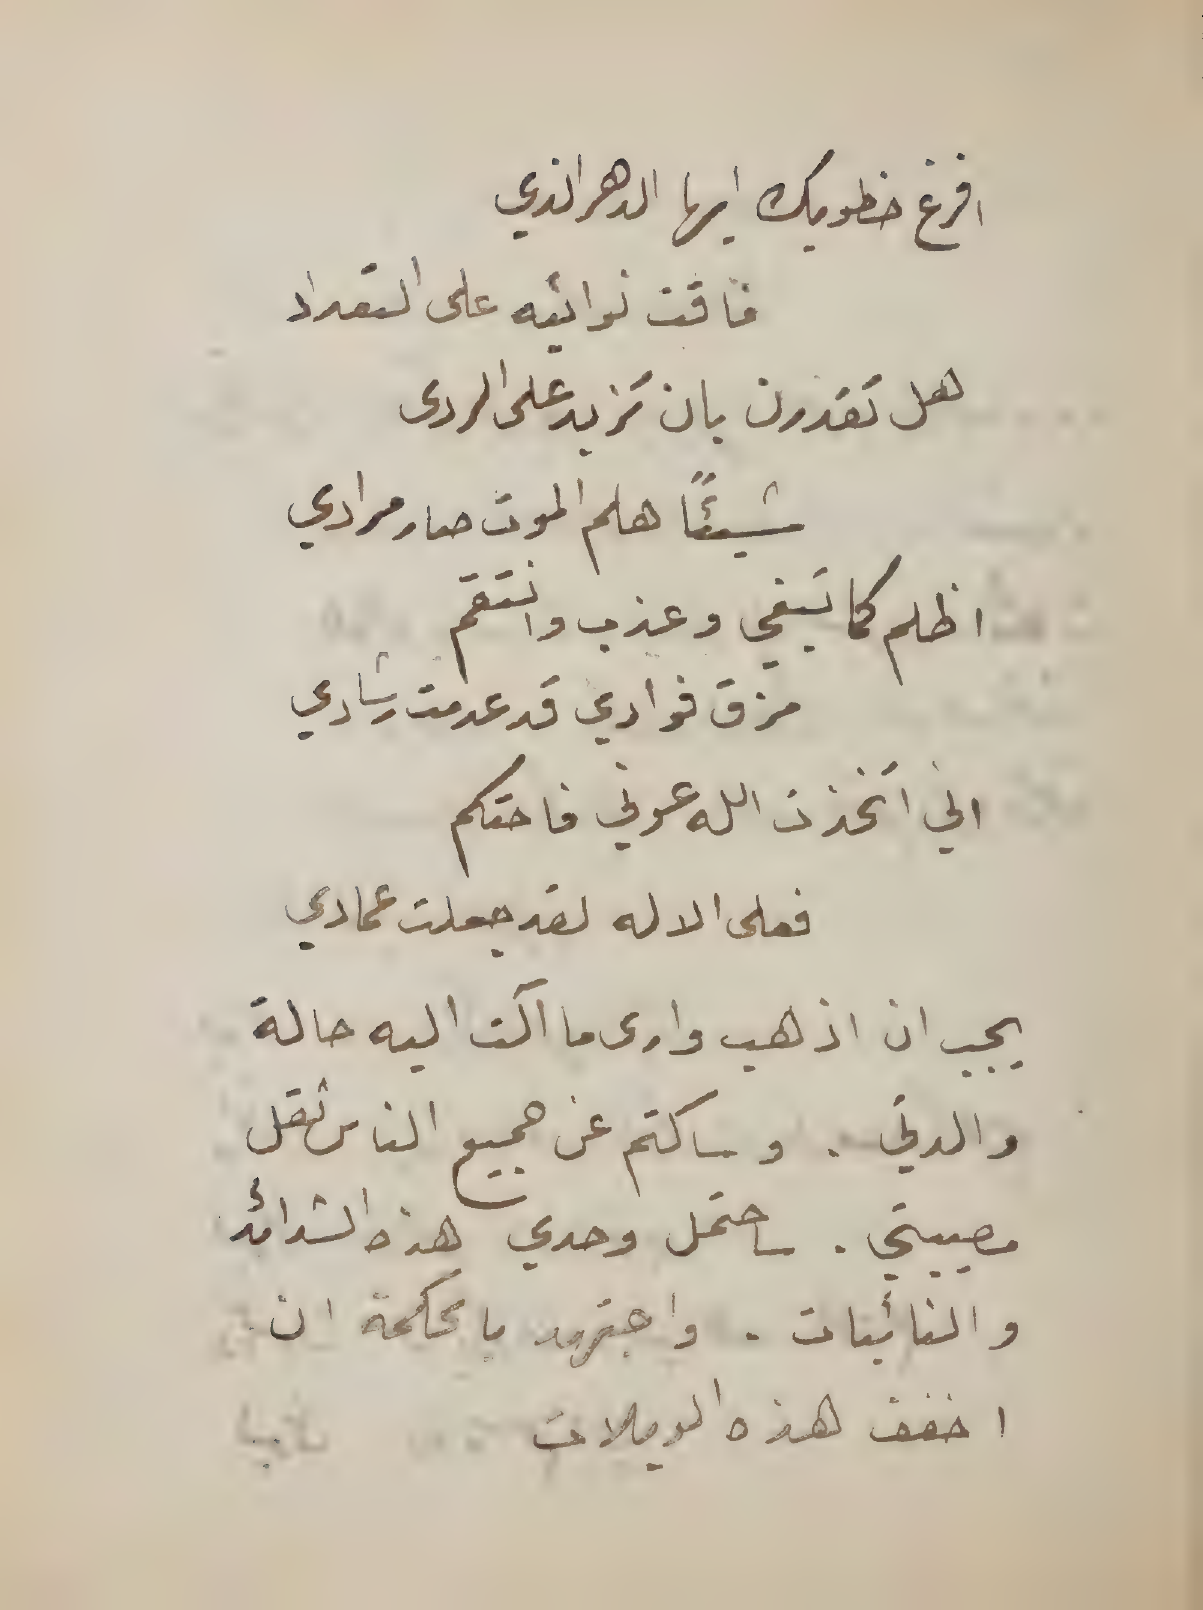 افرغ خطوبك ايها الدهر الذي
فاقت نوائبه على التعداد
هل تقدرن بان تزيد على الردى
شيئًا هلم الموت صار مرادي
اظلم كما تبغي وعذب وانتقم
مزق فوادي قد عدمت رشادي
اني اتخذت الله عوني فاحتكم
فعلى الاله لقد جعلت عمادي
يجب ان اذهب وارى ما آلت اليه حالة
والدتي . وساكتم عن جميع الناس ثقل
مصيبتي . ساحتمل وحدي هذه الشدائد
والنائبات . واجتهد بالحكمة ان
اخفف هذه الويلات